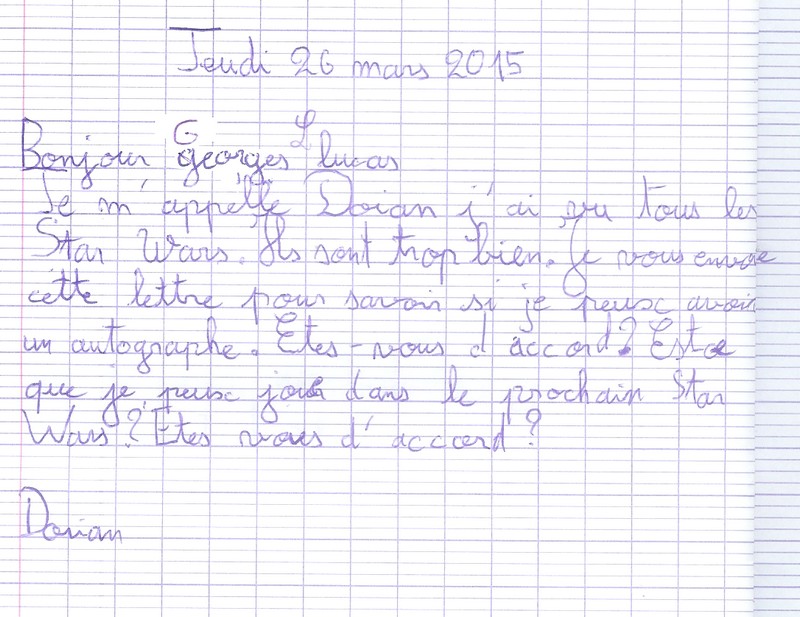 Jeudi 26 mars 2015
Bonjour Georges Lucas
Je m'appelle Dorian j'ai vu tous les
Star Wars. Ils sont trop bien. Je vous envoie
cette lettre pour savoir si je peux avoir
un autographe. Etes-vous d'accord? Est ce
que je peux jouer dans le prochain Star
Wars? Etes vous d'accord?
Dorian